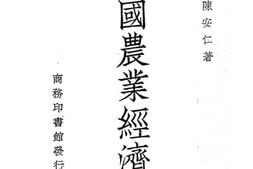 陳安仁著
國農業經濟
商務印書館發行